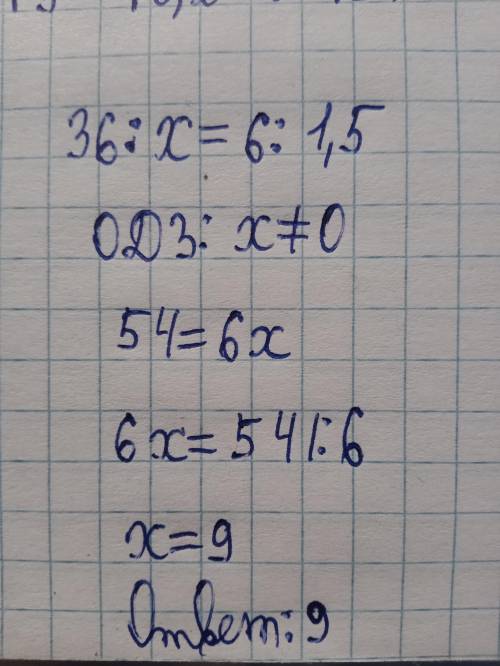 36 : x = 6 : 1,5
ОДЗ: x ≠ 0
54 = 6x
6x = 54 |: 6
x = 9
Ответ: 9